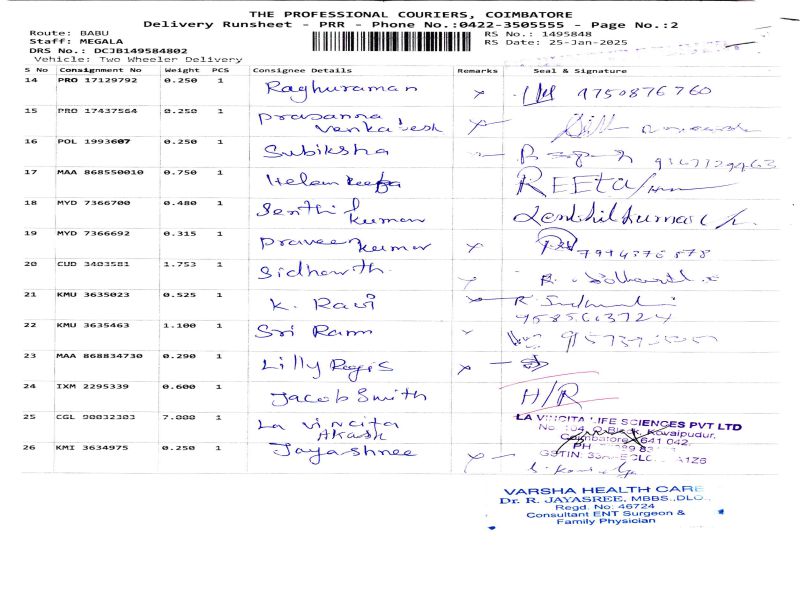 THE PROFESSIONAL COURIERS, COIMBATORE
Delivery Runsheet - PRR - Phone No.:0422-3505555 - Page No.:2
Route: BABU RS No.: 1495848
Staff: MEGALA RS Date: 25-Jan-2025
DRS No.: DCJB149584802
Vehicle: Two Wheeler Delivery
S No Consignment No Weight PCS Consignee Details Remarks Seal & Signature
14 PRO 17129792 0.250 1 Raghuraman 9750876760
15 PRO 17437564 0.250 1 Prasanna
Venkatesh
16 POL 1993607 0.250 1 Subiksha
17 MAA 868550010 0.750 1 Helam REETA
18 MYD 7366700 0.480 1 Senthil
Kumar
19 MYD 7366692 0.315 1 Praveen Kumar 7994376878
20 CUD 3403581 1.753 1 Sidharth
21 KMU 3635023 0.525 1 K. Ravi
9585603724
22 KMU 3635463 1.100 1 Sri Ram
23 MAA 868834730 0.290 1 Lilly Regis
24 IXM 2295339 0.600 1 Jacob Smith H/R
25 CGL 90032303 7.000 1 La Vincita
Akash
LA VINCITA LIFE SCIENCES PVT LTD
Kovaipudur,
Coimbatore 641 042.
PH
GSTIN:
26 KMI 3634975 0.250 1 Jayashree
VARSHA HEALTH CARE
Dr. R. JAYASREE, MBBS.,DLO.,
Regd. No: 46724
Consultant ENT Surgeon &
Family Physician